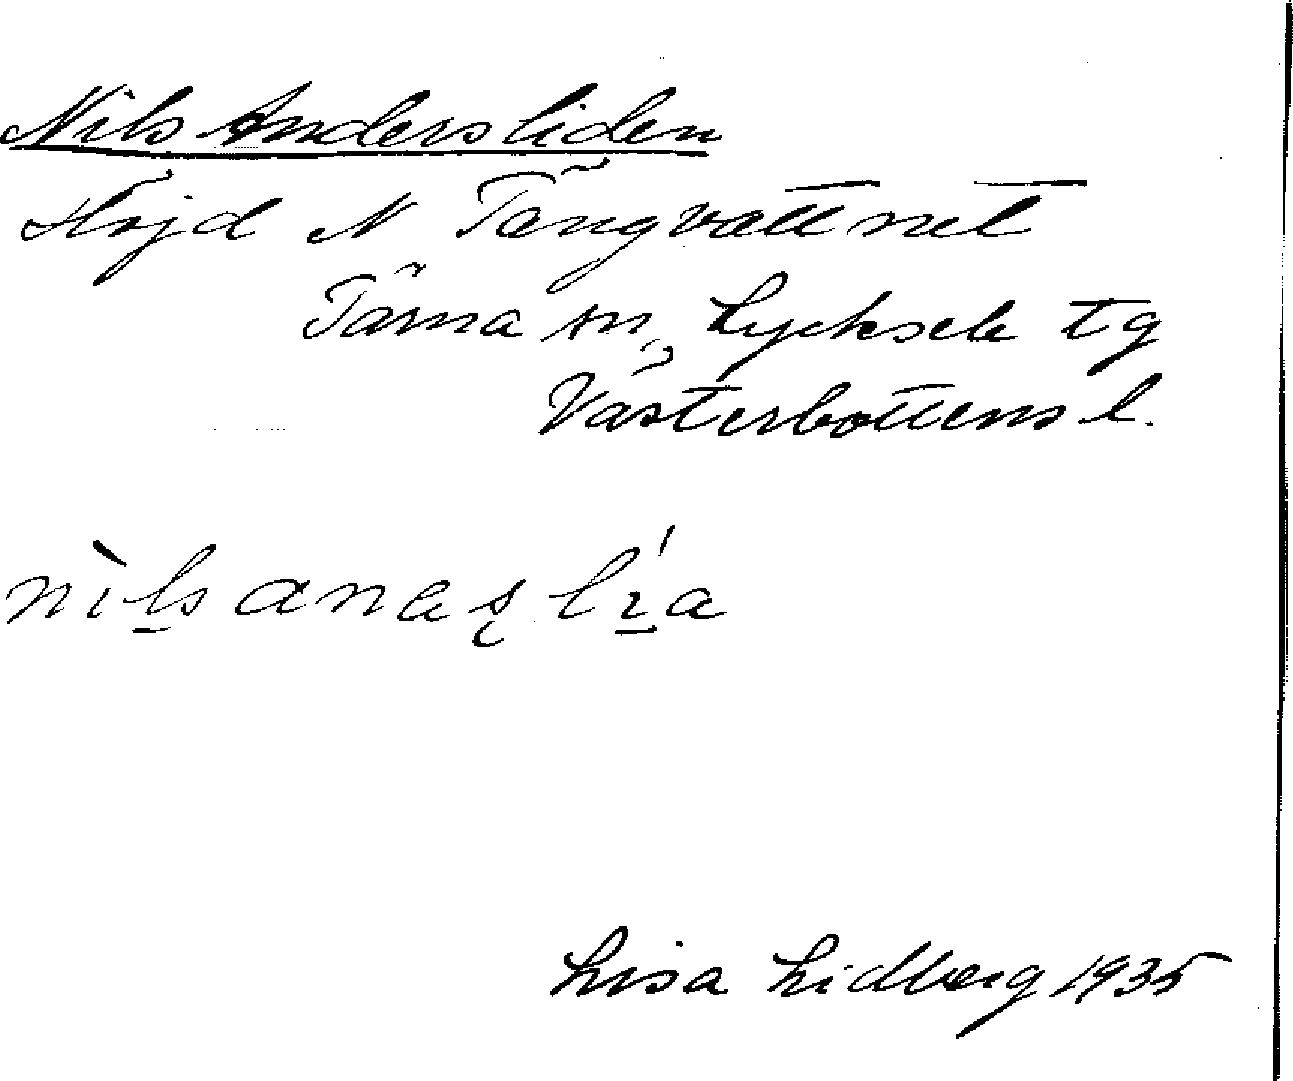 Nils Andersliden
Höjd N Tängvattnet
Tärna sn, Lycksele tg
Västerbottens l.
nìl̠s anaʂ lí̠a
Lisa Lidberg 1935